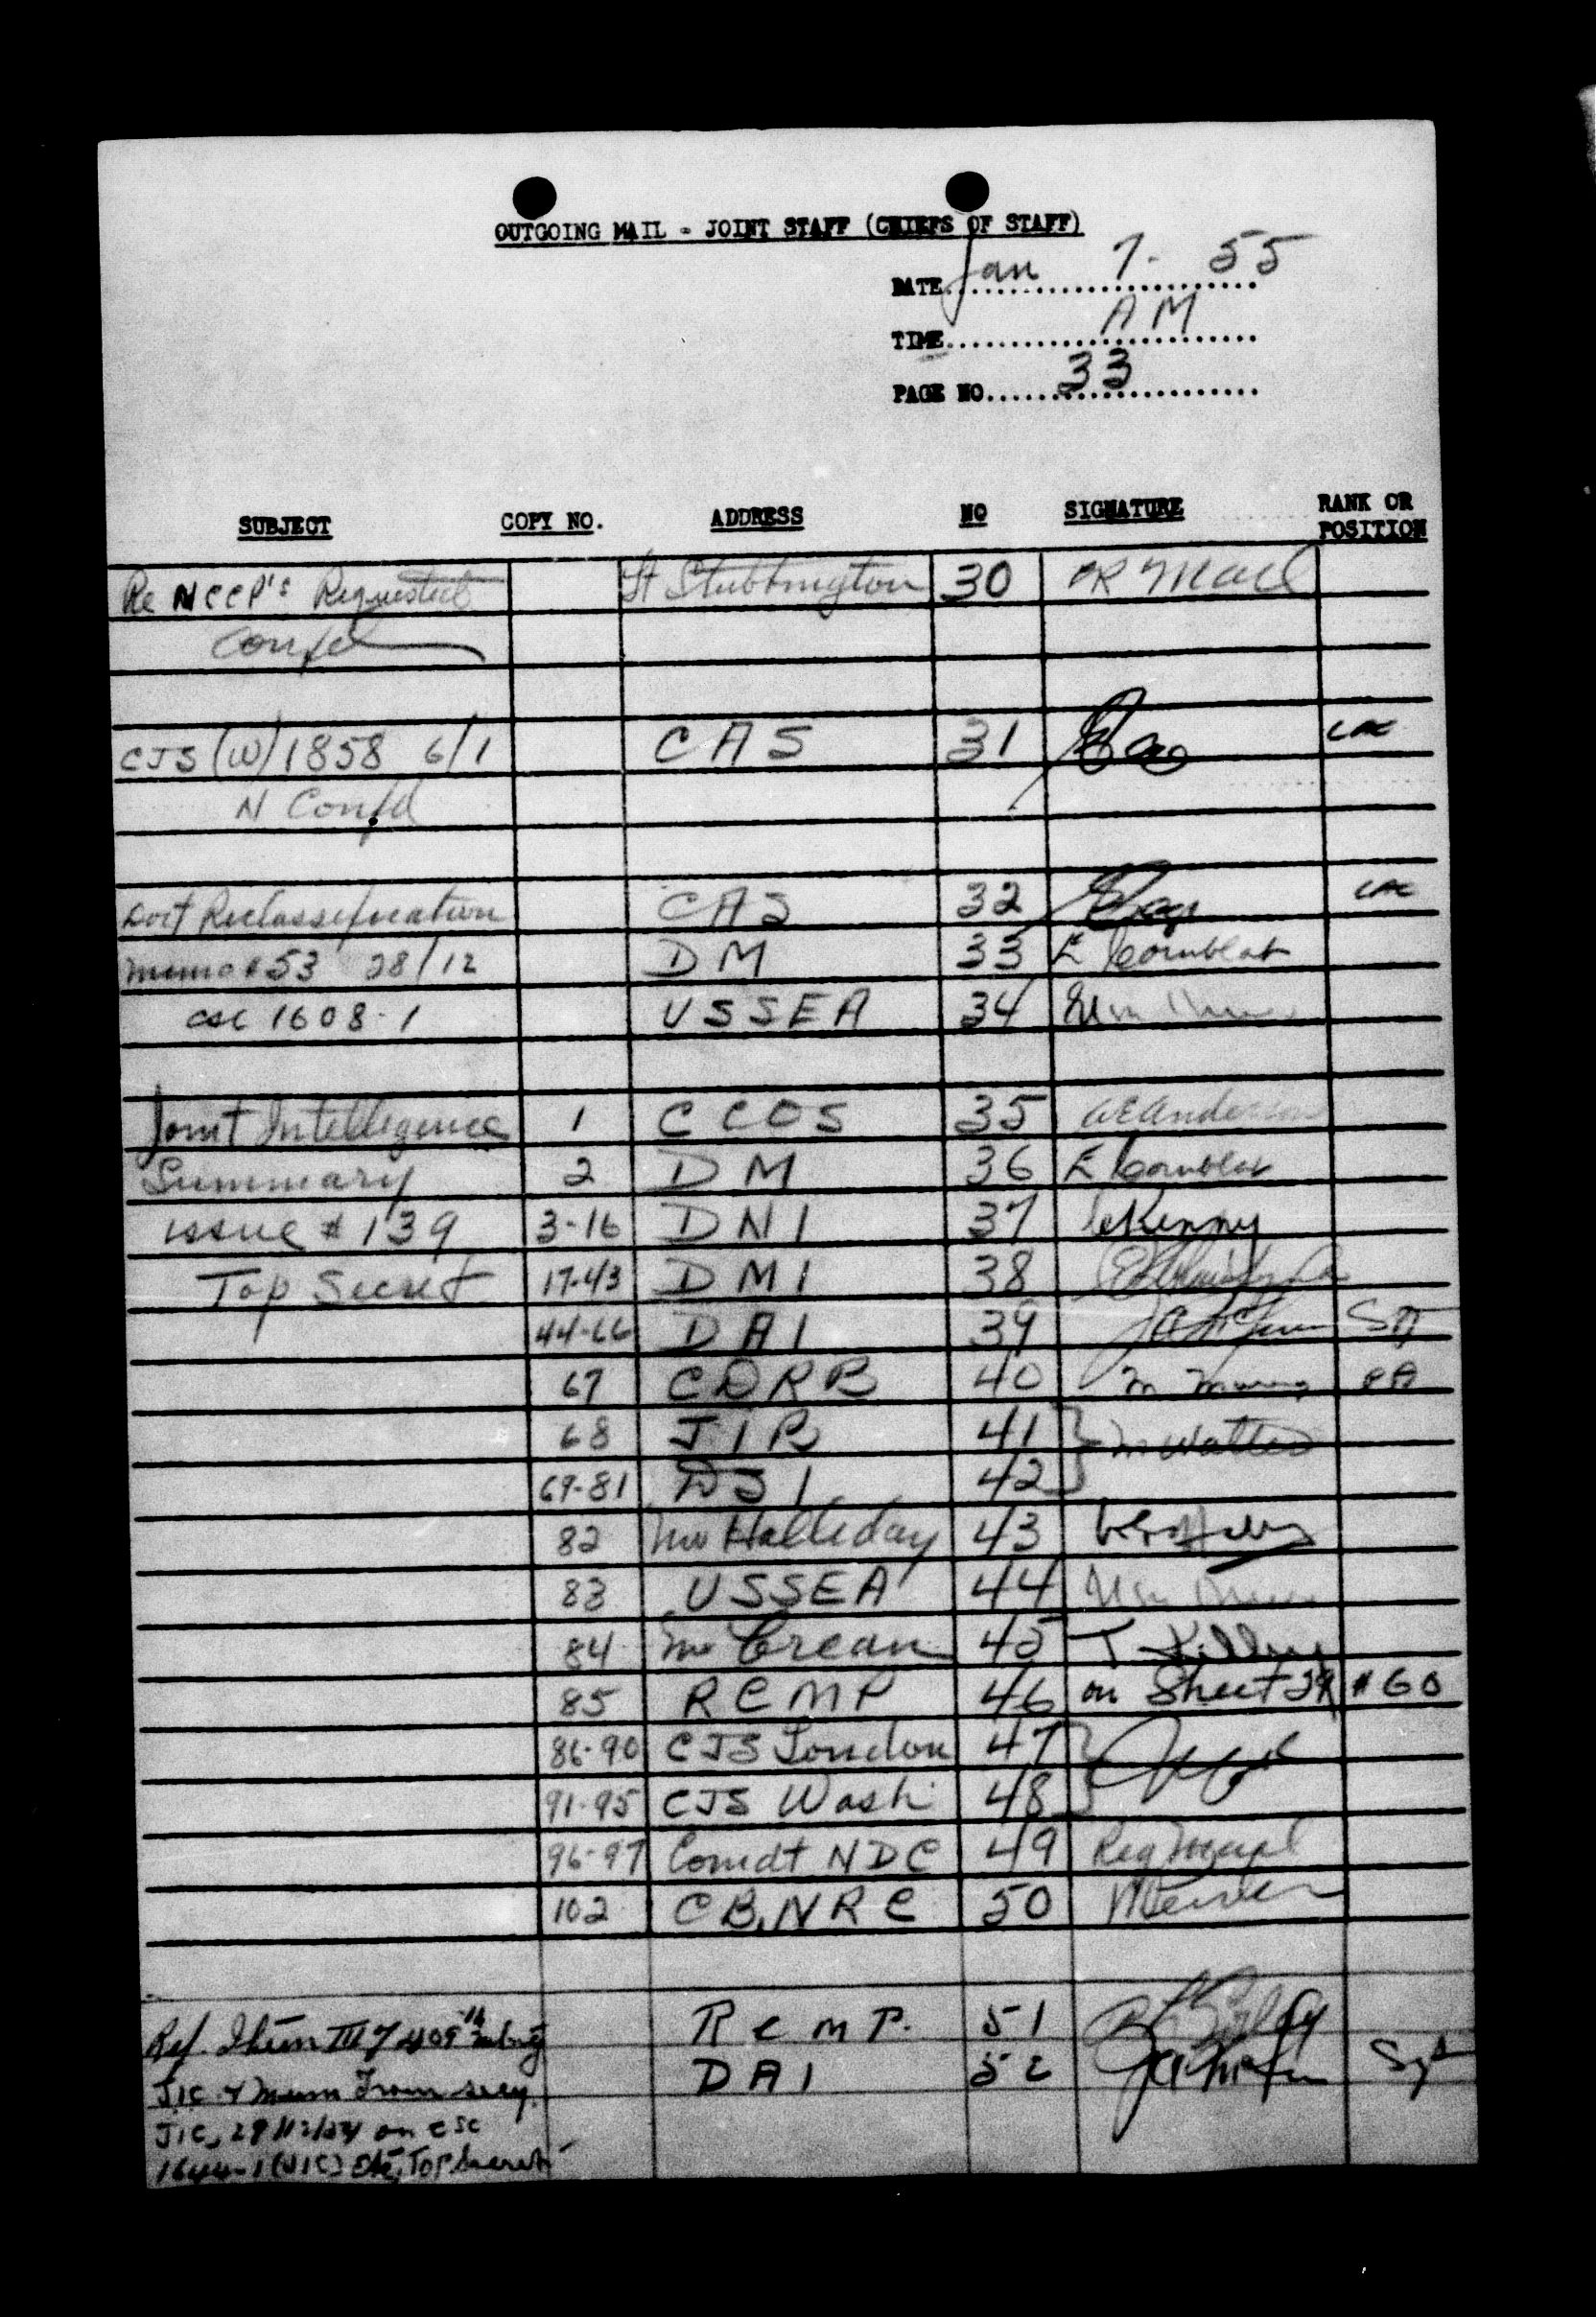 OUTGOING MAIL - JOINT STAFF (CHIEFS OF STAFF)
DATE Jan 7. 55
TIME AM
PAGE NO 33
SUBJECT COPY NO. ADDRESS NO SIGNATURE RANK OR POSITION
Re NCCP's Requested Lt Stubbington 30
Confd
CJS (W) 1858 6/1 CAS 31 LAC
N Confd
Doct Reclassification CAS 32 LAC
memo #53 28/12 DM 33 E Cornblat
CSC 1608-1 USSEA 34
Joint Intelligence 1 CCOS 35 A E Anderson
Summary 2 DM 36 E Cornblat
issue # 139 3-16 DNI 37 Kenny
Top Secret 17-43 DMI 38
44-66 DAI 39
67 CDRB 40 M
68 JIB 41 M Watters
69-81 DSI 42
82 Mr Halliday 43
83 USSEA 44
84 Mr Crean 45 T
85 RCMP 46 on Sheet 29 #60
86-90 CJS London 47
91-95 CJS Wash 48
96-97 Comdt NDC 49
102 CBNRC 50
Ref. Item III of 409th RCMP. 51
JIC & Memo from secy. DAI 52 Sgt
JIC, 29/12/54 on CSC
1644-1 (JIC) Top Secret